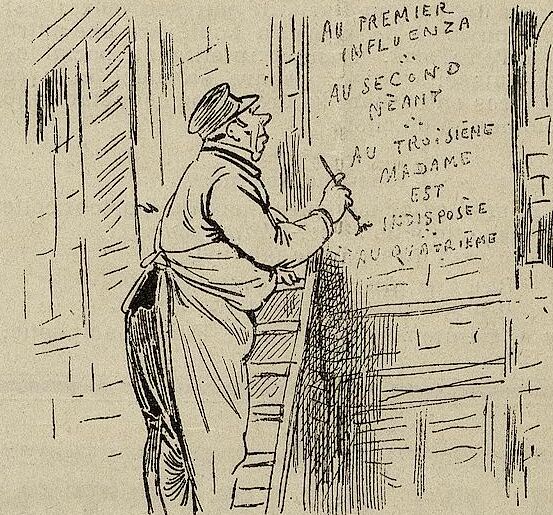 AU PREMIER
INFLUENZA
AU SECOND
NÉANT
AU TROISIÈME
MADAME
EST
INDISPOSÉE
AU QUATRIÈME